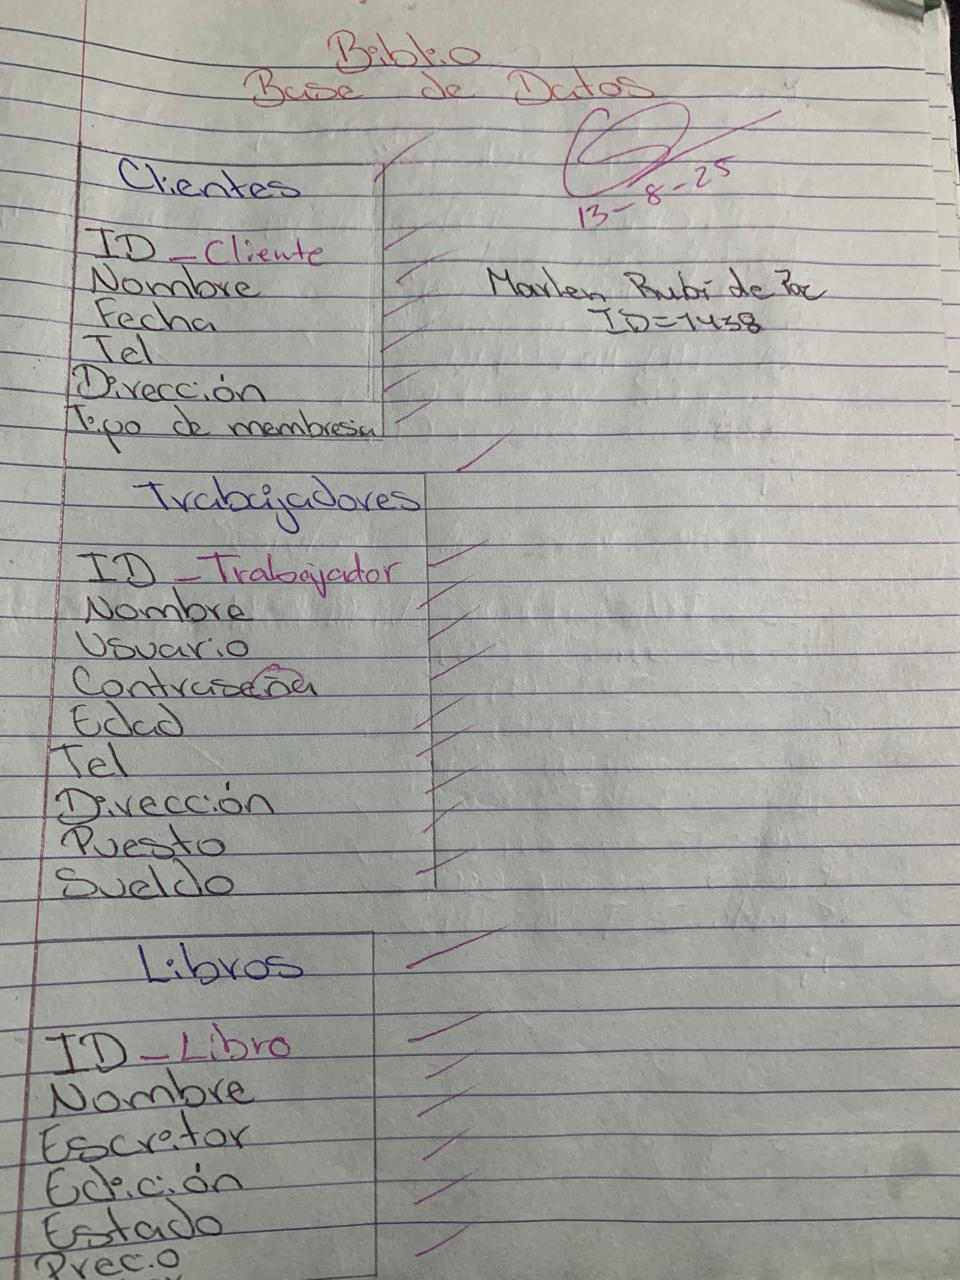 Biblio
Base de Datos
13-8-25
Clientes
ID_Cliente
Nombre
Fecha
Tel
Dirección
Tipo de membresa
Marlen Rubí de
ID=1438
Trabajadores
ID_Trabajador
Nombre
Usuario
Contraseña
Edad
Tel
Dirección
Puesto
Sueldo
Libros
ID_Libro
Nombre
Escritor
Edición
Estado
Precio